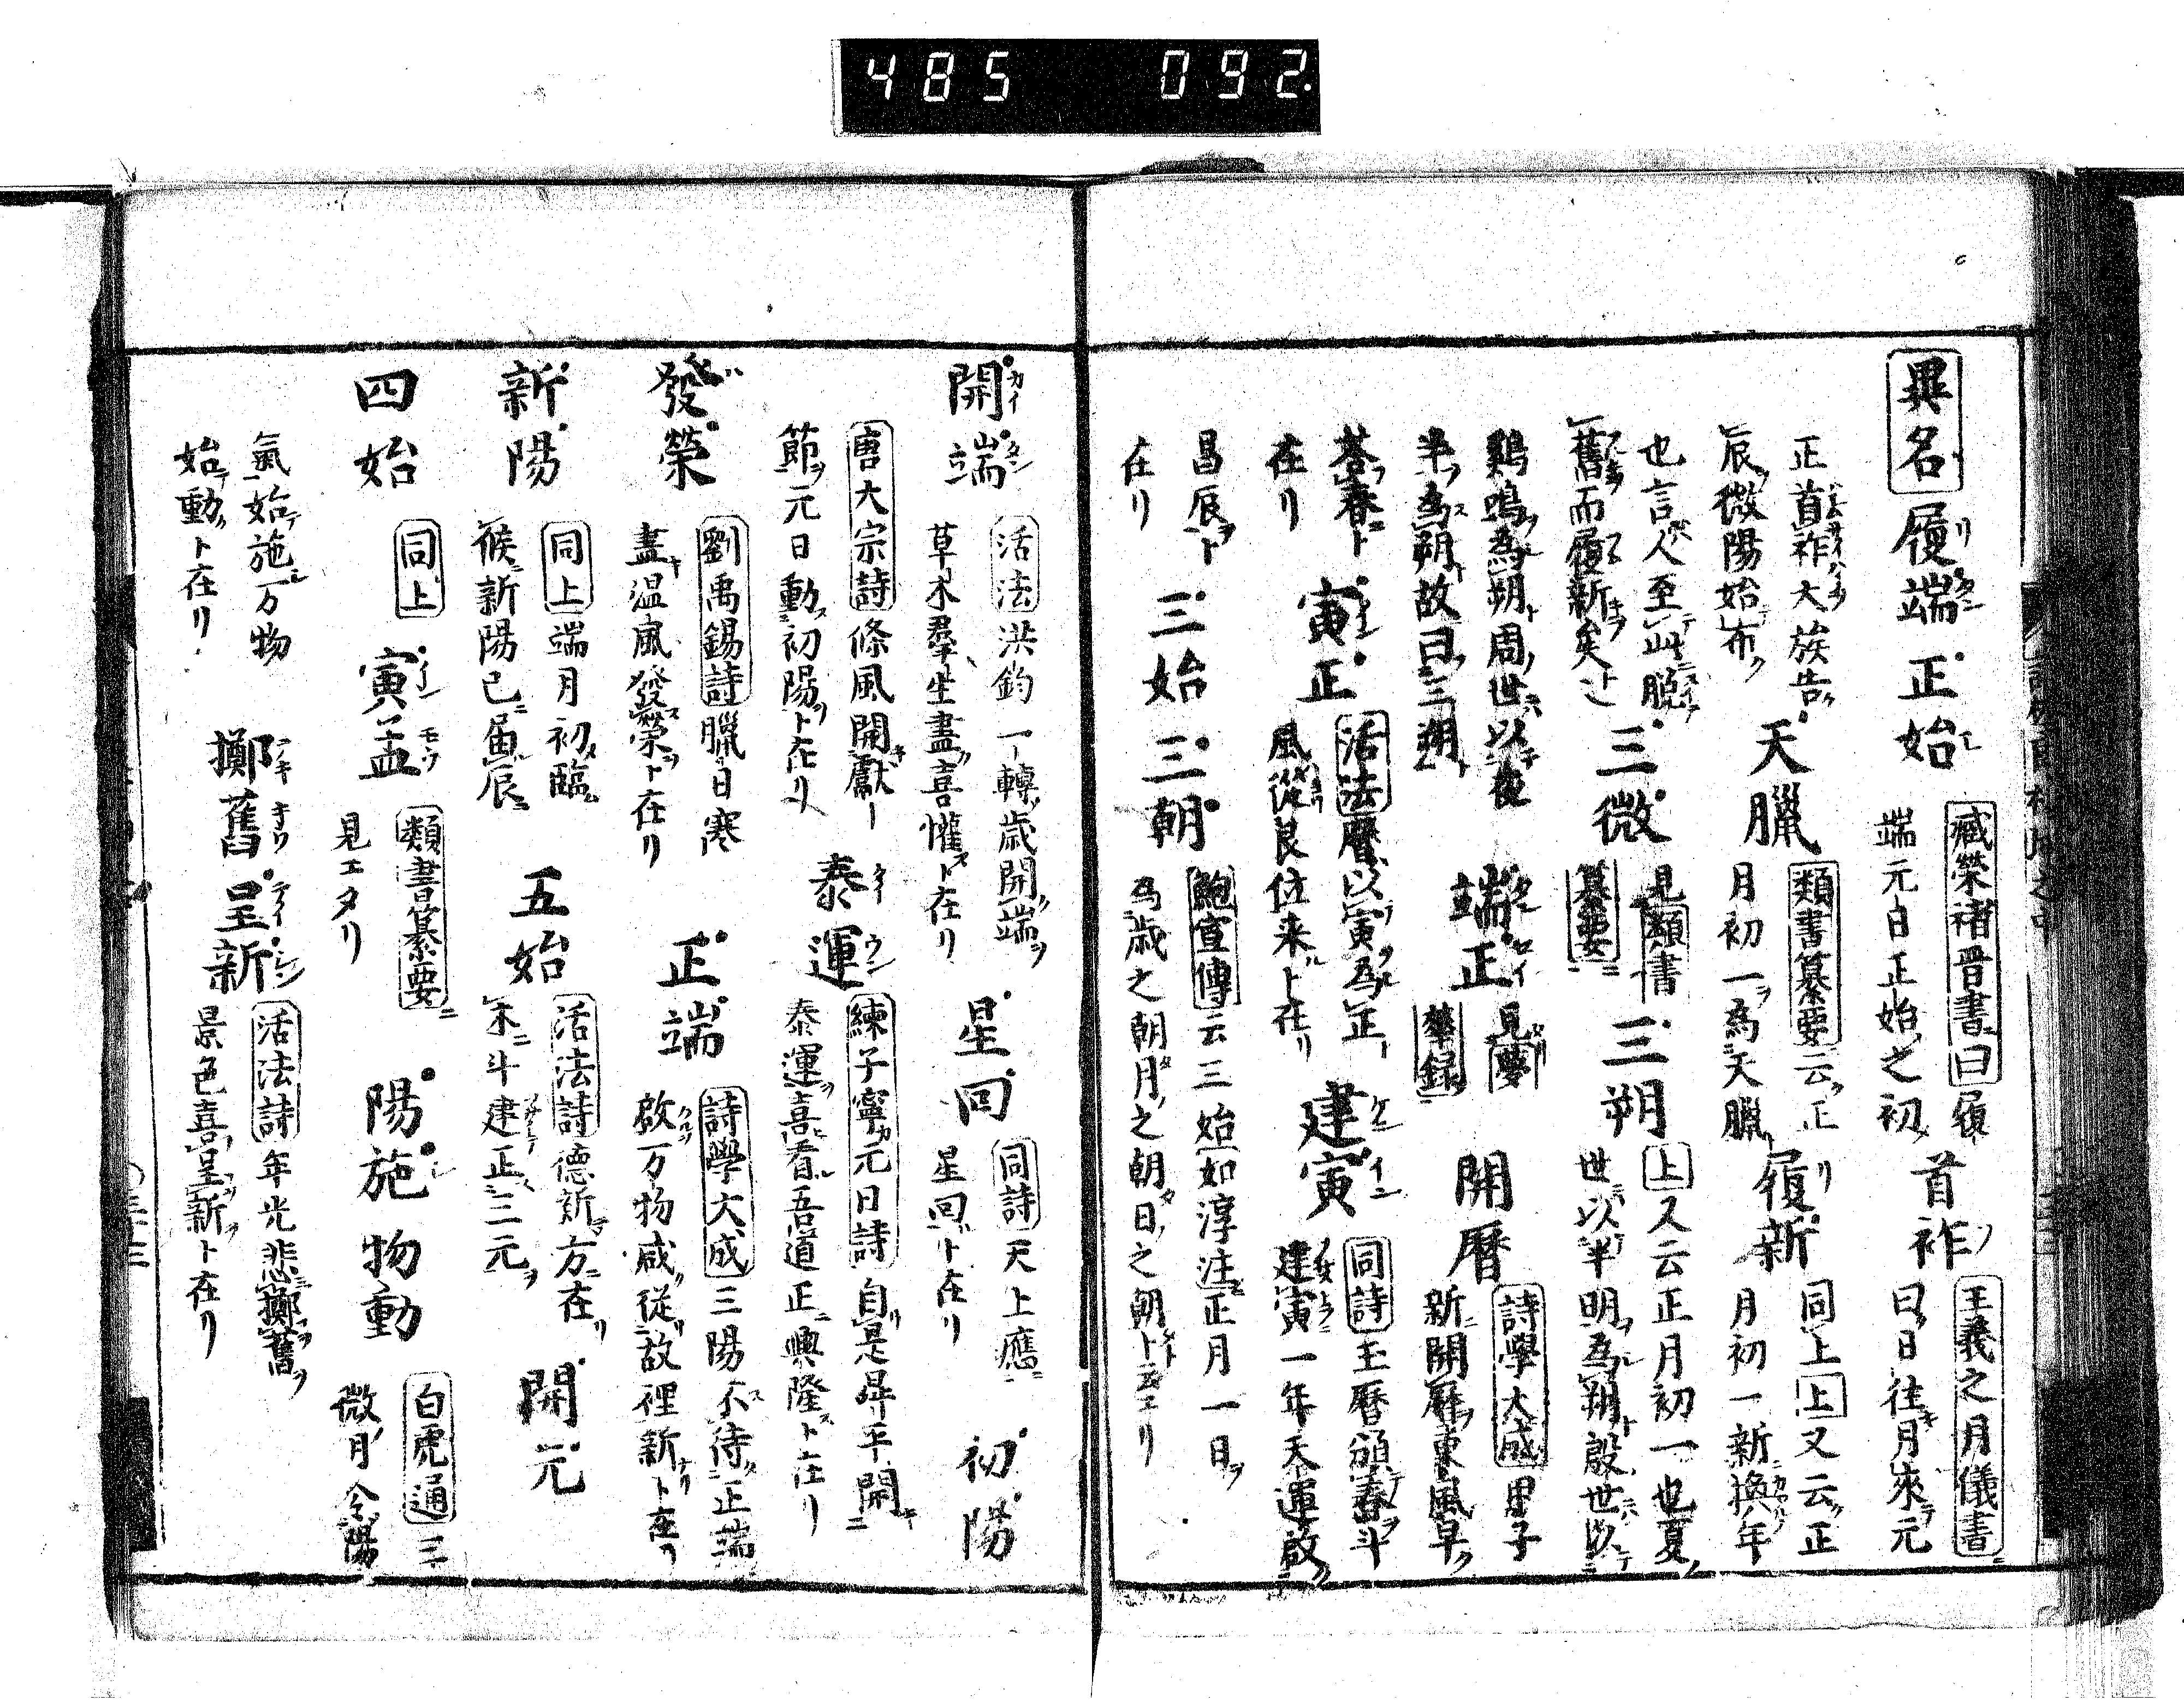 485 092.
異名 履端 正始 臧榮緒晋書曰履
端元日正始之初 首祚 王羲之月儀書
曰日往月來元
正首祚大族告
辰微陽始布 天臘 類書纂要云正
月初一為天臘 履新 同上上又云正
月初一新換年
也言人至此脱
舊而履新矣ト 三微 見類書
纂要ニ 三朔 上又云正月初一也夏
世以半明為朔殷世以
鷄鳴為朔周世以夜
半為朔故曰三朔ト 端正 見夢
華録 開暦 詩學大成甲子
新開暦東風早
荅春ト
在リ 寅正 活法暦以寅為正
風從艮位来ト在リ 建寅 同詩玉暦頒春斗
建寅一年天運啟
昌辰ト
在リ 三始 三朝 鮑宣傳云三始如淳注正月一日
為歳之朝月之朝日之朝ト云エリ
開端 活法洪鈞一轉歳開端
草木羣生盡喜懽ト在リ 星回 同詩天上應
星回ト在リ 初陽
唐大宗詩條風開獻
節元日動初陽ト在リ 泰運 練子寧元日詩自是昇平開
泰運喜看吾道正興隆ト在リ
發榮 劉禹錫詩臘日寒
盡温風發榮ト在リ 正端 詩學大成三陽不待正端
啟万物咸從故裡新ト在リ
新陽 同上端月初臨
候新陽已届辰 五始 活法詩德新方在
木斗建正三元 開元
四始 同上 寅孟 類書纂要ニ
見エタリ 陽施物動 白虎通三
微月令陽
氣始施万物
始動ト在リ 擲舊呈新 活法詩年光悲擲舊
景色喜呈新ト在リ